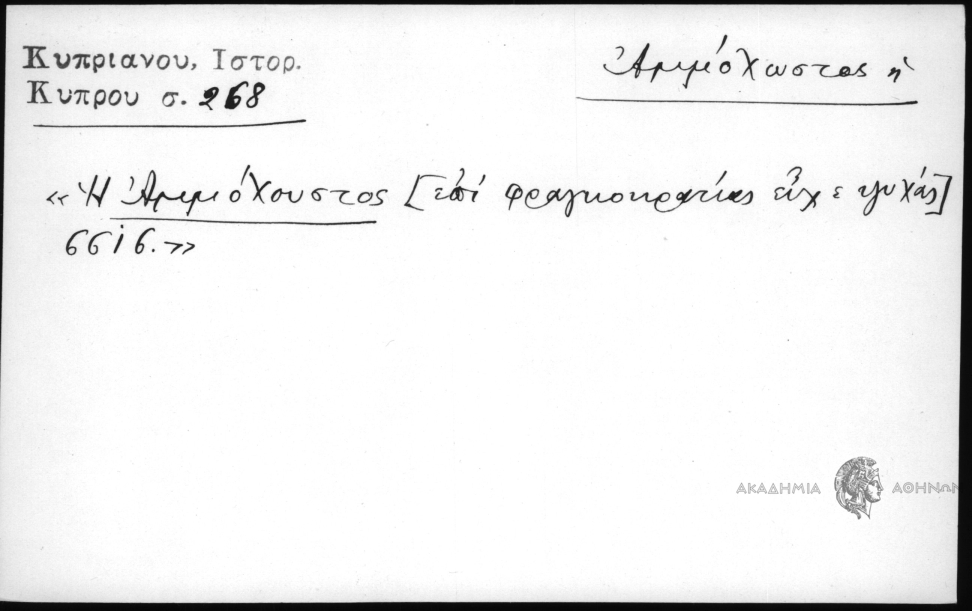 Κυπριανου, Ιστορ.
Κυπρου σ. 268
Ἀμμόχωστος ἡ
«Ἡ Ἀμμόχουστος [ἐπί φραγκοκρατίας εἶχε ψυχάς]
6616.»
ΑΚΑΔΗΜΙΑ ΑΘΗΝΩΝ